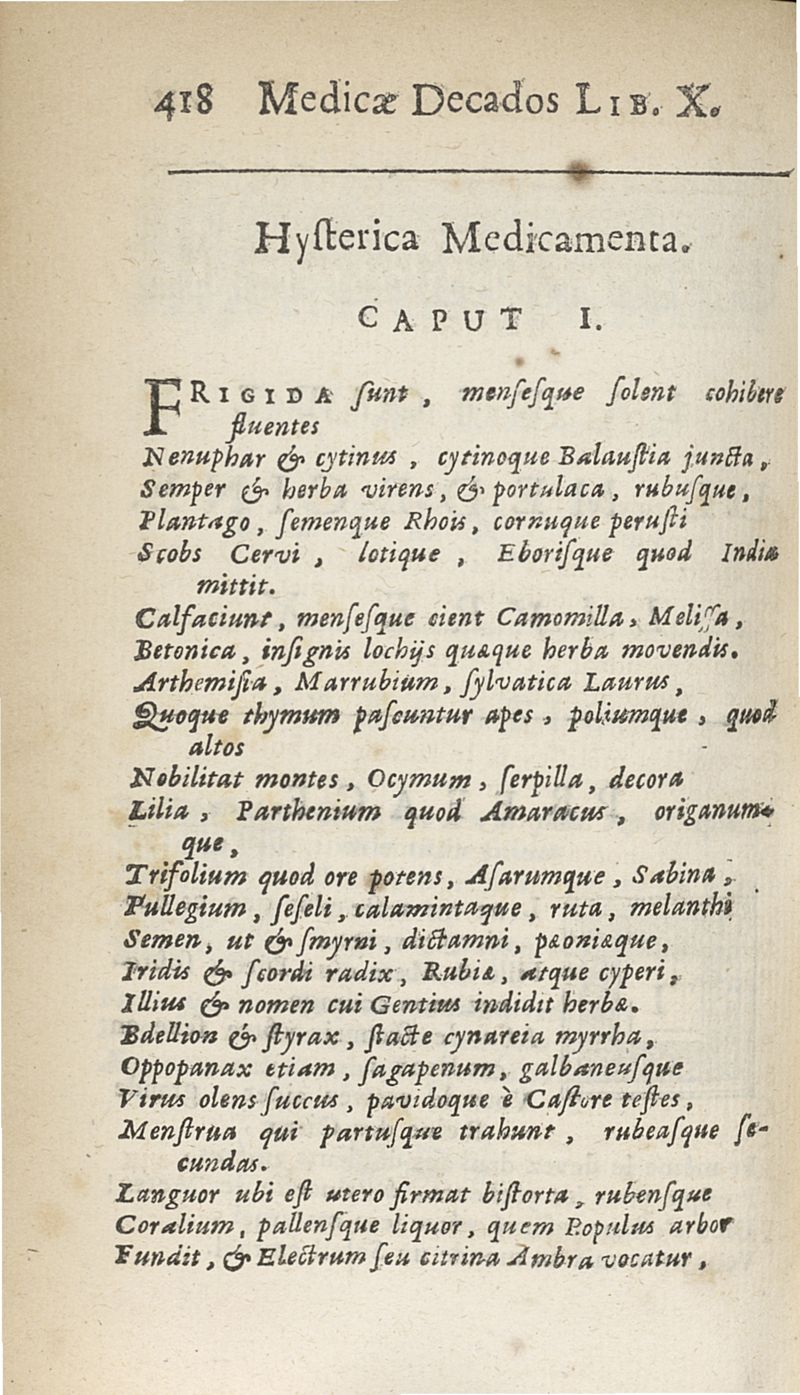 418 Medicæ Decados LIB. X.
Hyſterica Medicamenta.
CAPUT I.
FRIGIDA ſunt, menſeſque ſolent cohibere
fluentes
Nenuphar & cytinus, cytinoque Balauſtia juncta,
Semper & herba virens, & portulaca, rubuſque,
Plantago, ſemenque Rhois, cornuque peruſti
Scobs Cervi, lotique, Eboriſque quod India
mittit.
Calfaciunt, menſeſque cient Camomilla, Meliſſa,
Betonica, inſignis lochijs quæque herba movendis.
Arthemiſia, Marrubium, ſylvatica Laurus,
Quoque thymum paſcuntur apes, poliumque, quod
altos
Nobilitat montes, Ocymum, ſerpilla, decora
Lilia, Parthenium quod Amaracus, origanum-
que,
Trifolium quod ore potens, Aſarumque, Sabina,
Pullegium, ſeſeli, calamintaque, ruta, melanthi
Semen, ut & ſmyrni, dictamni, pæoniæque,
Iridis & ſcordi radix, Rubiæ, atque cyperi,
Illius & nomen cui Gentius indidit herbæ.
Bdellion & ſtyrax, ſtacte cynareia myrrha,
Oppopanax etiam, ſagapenum, galbaneuſque
Virus olens ſuccus, pavidoque è Caſtore teſtes,
Menſtrua qui partuſque trahunt, rubeaſque ſe-
cundas.
Languor ubi eſt utero firmat biſtorta, rubenſque
Coralium, pallenſque liquor, quem Populus arbor
Fundit, & Electrum ſeu citrina Ambra vocatur,